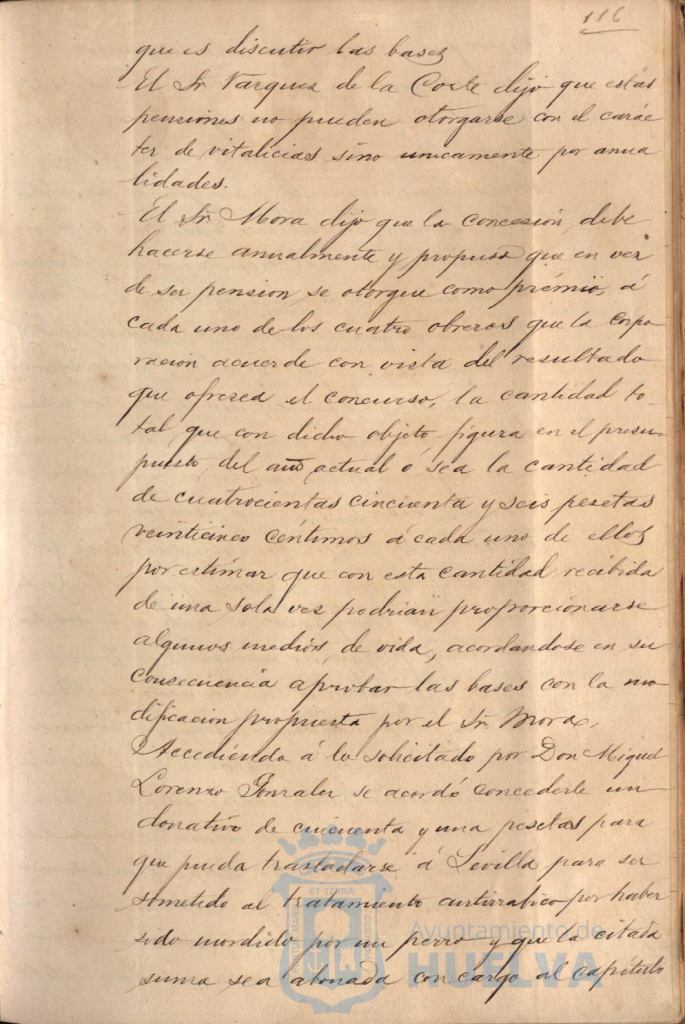 116
que es discutir las bases
El Sr Vazquez de la Corte dijo que estas
pensiones no pueden otorgarse con el carác
ter de vitalicias sino unicamente por anua
lidades.
El Sr. Mora dijo que la concesión, debe
hacerse anualmente y propuso que en vez
de ser pension, se otorgue como prémio, á
cada uno de los cuatro obreros que la corpo-
racion acuerde con vista del resultado
que ofrezca el concurso, la cantidad to-
tal que con dicho objeto figura en el presu-
puesto del año actual ó sea la cantidad
de cuatrocientas cincuenta y seis pesetas
veinticinco céntimos á cada uno de ellos
por estimar que con esta cantidad recibida
de una sola vez podrian proporcionarse
algunos medios de vida, acordandose en su
consecuencia aprobar las bases con la mo
dificacion propuesta por el Sr. Mora.
Accediendo á lo solicitado por Don Miguel
Lorenzo Gonzalez se acordó concederle un
donativo de cincuenta y una pesetas para
que pueda trasladarse á Sevilla para ser
sometido al tratamiento antirrabico por haber
sido mordido por un perro y que la citada
suma sea abonada con cargo al capitulo
ET TERRA
Ayuntamiento de
HUELVA